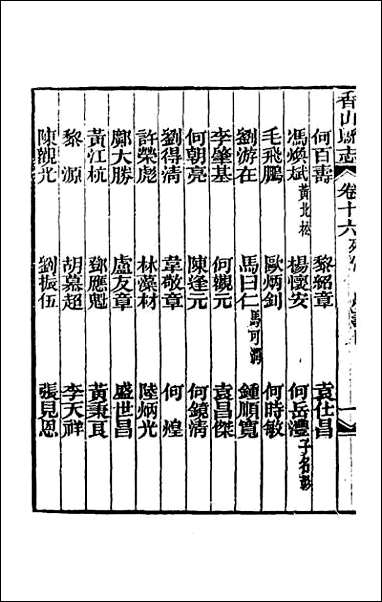 香山縣志 卷十六
何百壽 黎紹章 袁仕昌
馮煥斌 黃北松 楊懷安 何岳灃
毛飛鵬 歐炳釗 何時敏
劉游在 馬曰仁 馬可 鍾順寬
李肇基 何觀元 袁昌傑
何朝亮 陳逢元 何鏡清
劉得清 韋敬章 何煌
許榮彪 林藻材 陸炳光
鄺大勝 盧友章 盛世昌
黃江杭 鄧應魁 黃秉良
黎源 胡慕超 李天祥
陳觀光 劉振伍 張見恩